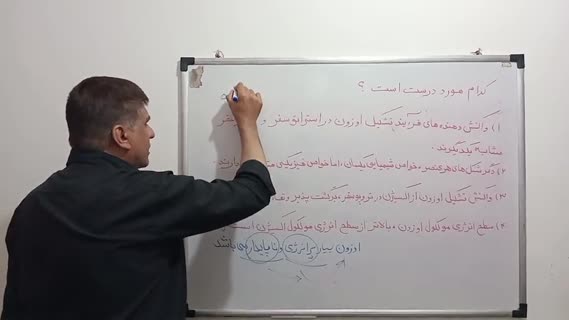 کدام مورد درست است ؟
۱) واکنش دهنده های فرآیند تشکیل اوزون در استراتوسفر و
مشابه یکدیگرند .
۲) دگر شکل های هر عنصر ، خواص شیمیایی یکسان ، اما خواص فیزیکی دارند .
۳) واکنش تشکیل اوزون از اکسیژن در تروپوسفر ، برگشت پذیر و
۴) سطح انرژی مولکول اوزون ، بالاتر از سطح انرژی مولکول اکسیژن است
اوزون بسیار پر انرژی و ناپایدار می باشد